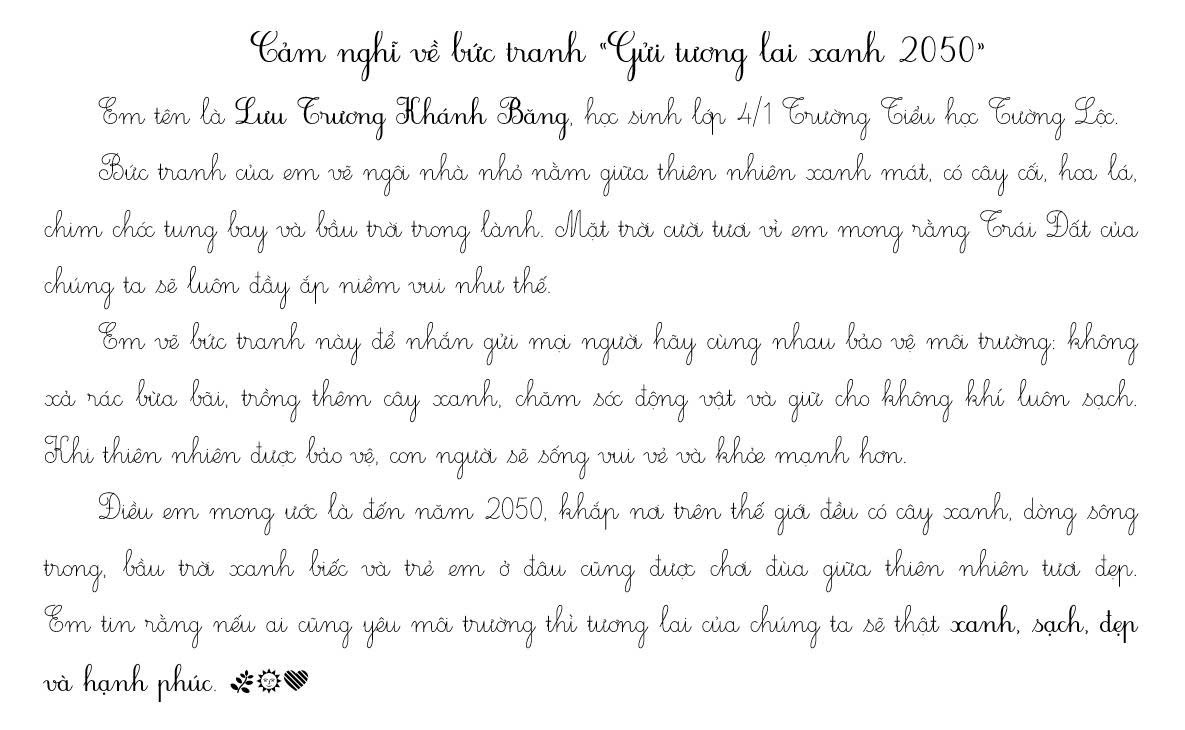 Cảm nghĩ về bức tranh “Gửi tương lai xanh 2050”
Em tên là Lưu Trương Khánh Băng, học sinh lớp 4/1 Trường Tiểu học Tường Lộc.
Bức tranh của em vẽ ngôi nhà nhỏ nằm giữa thiên nhiên xanh mát, có cây cối, hoa lá,
chim chóc tung bay và bầu trời trong lành. Mặt trời cười tươi vì em mong rằng Trái Đất của
chúng ta sẽ luôn đầy ắp niềm vui như thế.
Em vẽ bức tranh này để nhắn gửi mọi người hãy cùng nhau bảo vệ môi trường: không
xả rác bừa bãi, trồng thêm cây xanh, chăm sóc động vật và giữ cho không khí luôn sạch.
Khi thiên nhiên được bảo vệ, con người sẽ sống vui vẻ và khỏe mạnh hơn.
Điều em mong ước là đến năm 2050, khắp nơi trên thế giới đều có cây xanh, dòng sông
trong, bầu trời xanh biếc và trẻ em ở đâu cũng được chơi đùa giữa thiên nhiên tươi đẹp.
Em tin rằng nếu ai cũng yêu môi trường thì tương lai của chúng ta sẽ thật xanh, sạch, đẹp
và hạnh phúc.